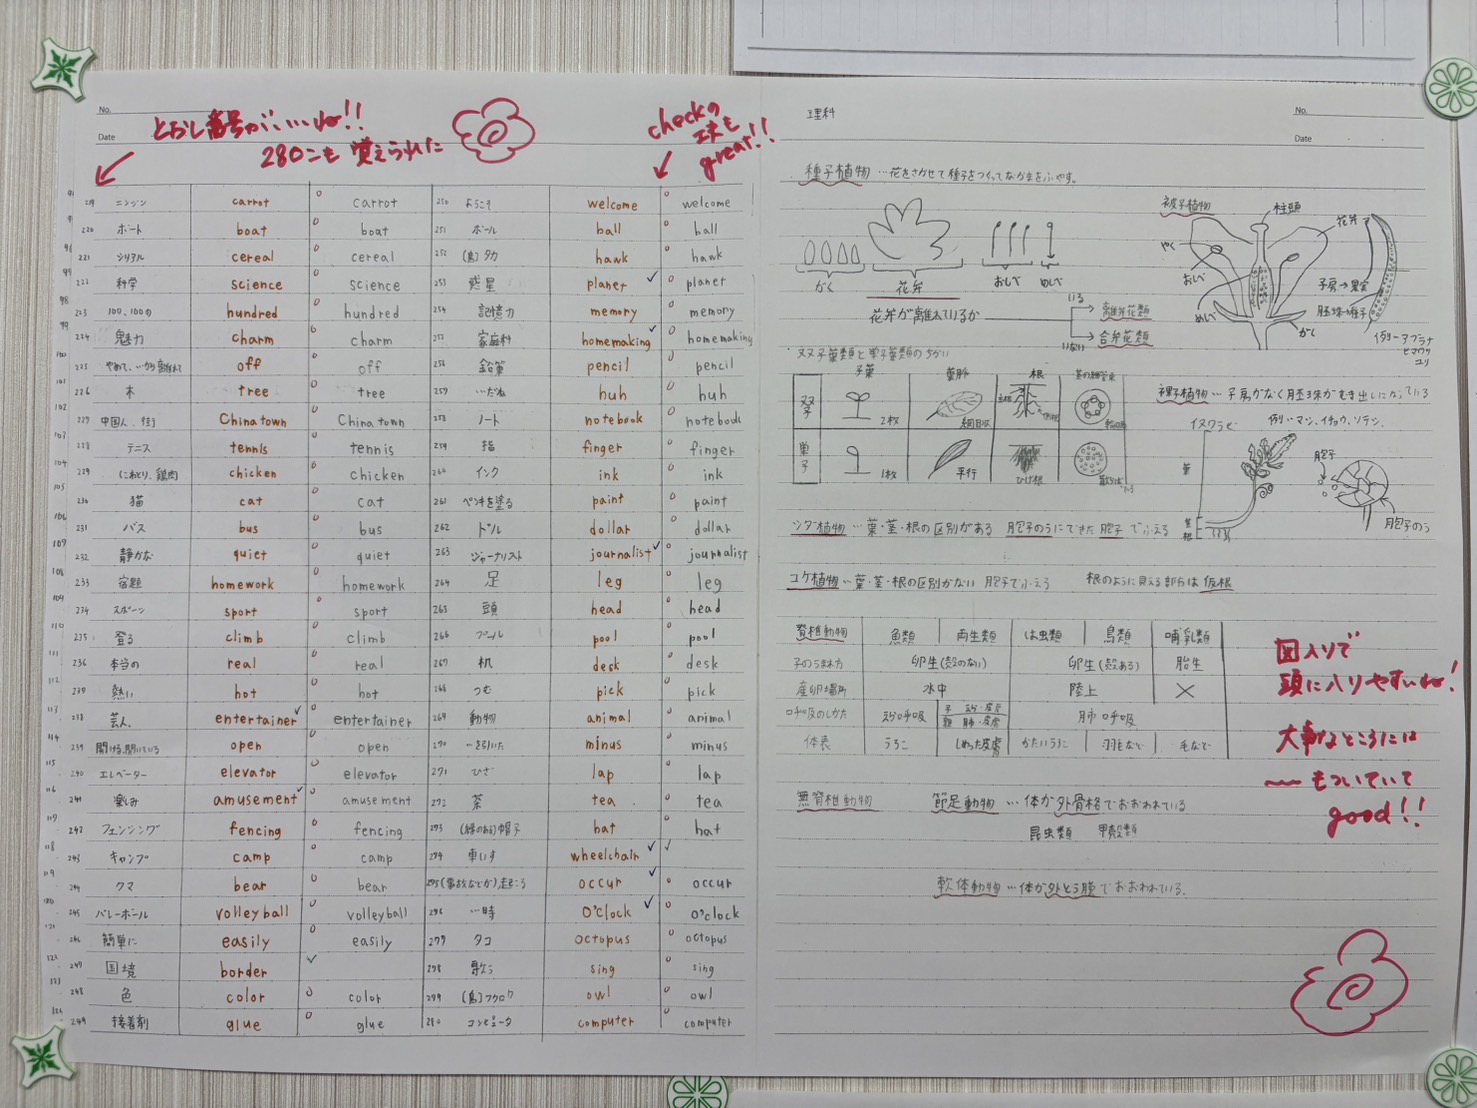 No.
Date
とおし番号がいいね!!
280こも覚えられた
checkの
工夫も
great!!
219 ニンジン carrot carrot 250 ようこそ welcome welcome
220 ボート boat boat 251 ボール ball ball
221 シリアル cereal cereal 252 (鳥)タカ hawk hawk
222 科学 science science 253 惑星 planet planet
223 100、100の hundred hundred 254 記憶力 memory memory
224 魅力 charm charm 255 家庭科 homemaking homemaking
225 off off 256 鉛筆 pencil pencil
226 木 tree tree 257 …だね huh huh
227 中国人街 Chinatown Chinatown 258 ノート notebook notebook
228 テニス tennis tennis 259 指 finger finger
229 にわとり、鶏肉 chicken chicken 260 インク ink ink
230 猫 cat cat 261 ペンキを塗る paint paint
231 バス bus bus 262 ドル dollar dollar
232 静かな quiet quiet 263 ジャーナリスト journalist journalist
233 宿題 homework homework 264 足 leg leg
234 スポーツ sport sport 265 頭 head head
235 登る climb climb 266 プール pool pool
236 本当の real real 267 机 desk desk
237 熱い hot hot 268 つむ pick pick
238 芸人 entertainer entertainer 269 動物 animal animal
239 開ける、開いている open open 270 …を引いた minus minus
240 エレベーター elevator elevator 271 ひざ lap lap
241 楽しみ amusement amusement 272 茶 tea tea
242 フェンシング fencing fencing 273 (縁のある)帽子 hat hat
243 キャンプ camp camp 274 車いす wheelchair
244 クマ bear bear 275 (事故などが)起こる occur occur
245 バレーボール volleyball volleyball 276 …時 o'clock o'clock
246 簡単に easily easily 277 タコ octopus octopus
247 国境 border 278 歌う sing sing
248 色 color color 279 (鳥)フクロウ owl owl
249 接着剤 glue glue 280 コンピュータ computer computer
理科
No.
Date
種子植物…花をさかせて種子をつくってなかまをふやす。
がく 花弁 おしべ めしべ
花弁が離れているか
いる 離弁花類
いない 合弁花類
被子植物
柱頭
やく
花弁
おしべ
子房→果実
めしべ
胚珠→種子
がく
例…アブラナ
ヒマワリ
ユリ
・双子葉類と単子葉類のちがい
子葉 葉脈 根 茎の維管束
双子 2枚 網目状 主根 側根
単子 1枚 平行 ひげ根
裸子植物…子房がなく胚珠がむき出しになっている
例…マツ、イチョウ、ソテツ、
イヌワラビ
葉
茎
根
胞子
胞子のう
シダ植物…葉・茎・根の区別がある 胞子のうにできた胞子でふえる
コケ植物…葉・茎・根の区別がない 胞子でふえる 根のように見える部分は仮根
脊椎動物 魚類 両生類 は虫類 鳥類 哺乳類
子のうまれ方 卵生(殻のない) 卵生(殻ある) 胎生
産卵場所 水中 陸上 ×
呼吸のしかた えら呼吸 子 えら・皮ふ 親 肺・皮膚 肺呼吸
体表 うろこ しめった皮膚 かたいうろこ 羽毛など 毛など
無脊椎動物 節足動物…体が外骨格でおおわれている
昆虫類 甲殻類
軟体動物…体が外とう膜でおおわれている。
図入りで
頭に入りやすいね!
大事なところには
〜〜もついていて
good!!